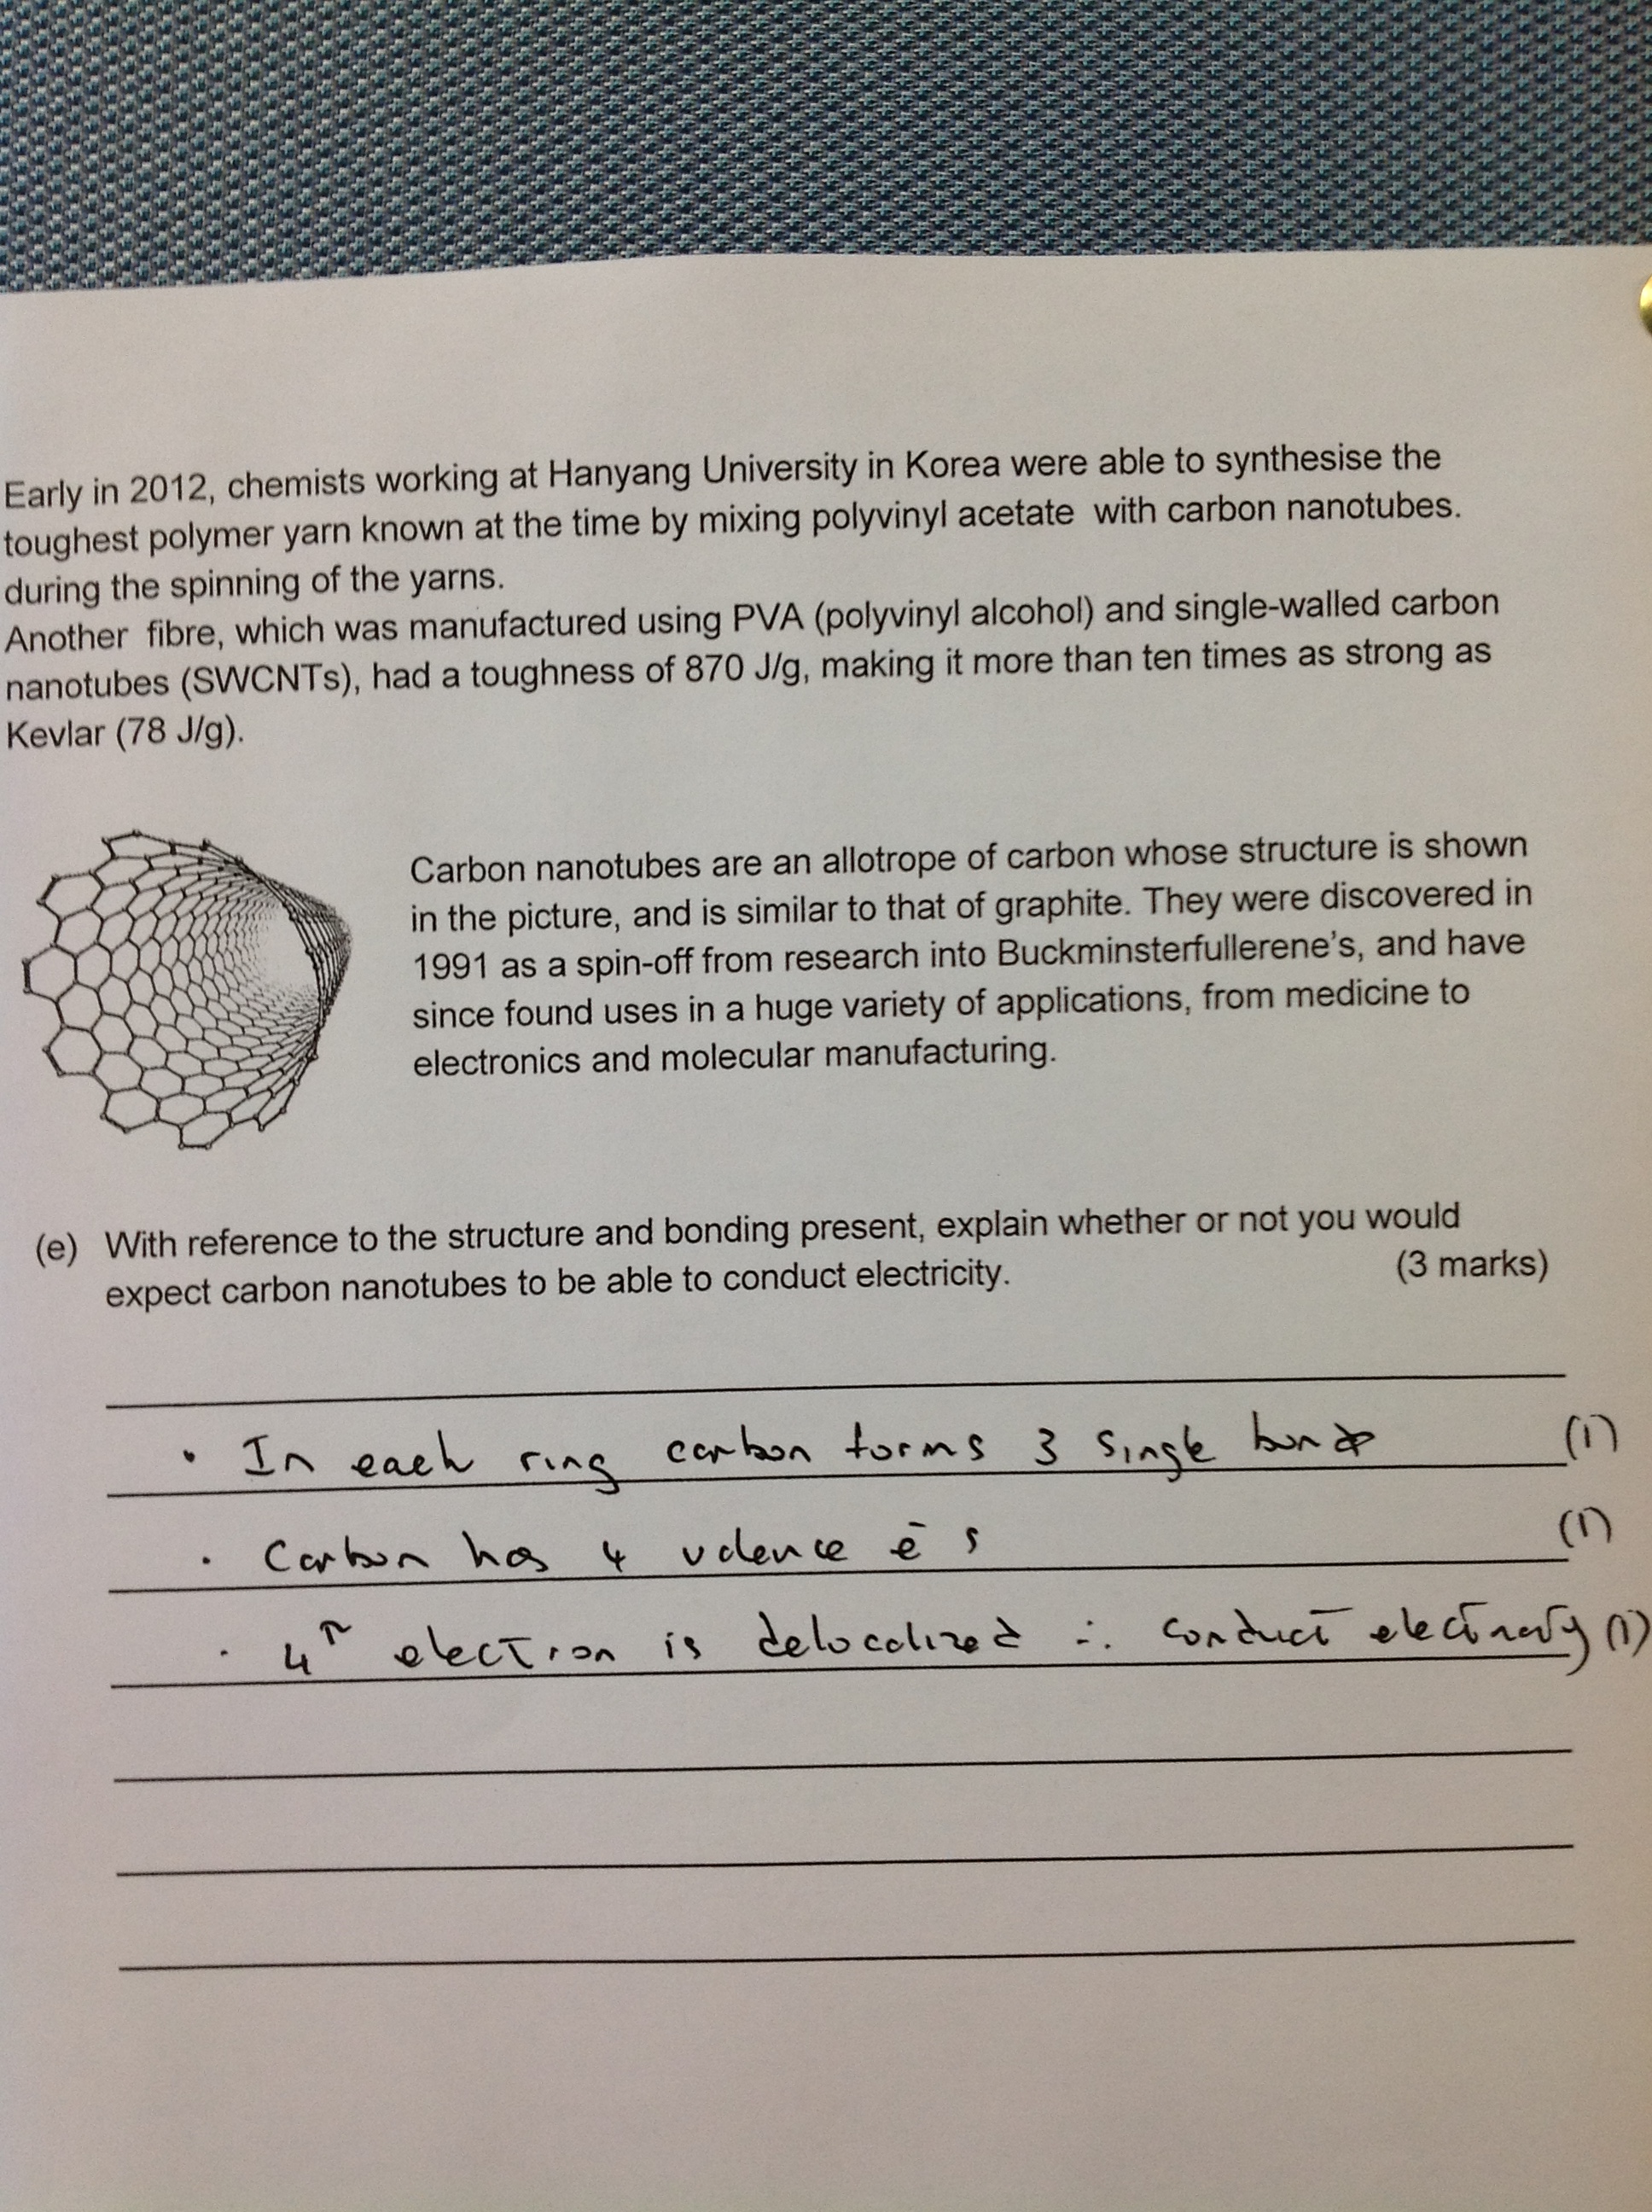 Early in 2012, chemists working at Hanyang University in Korea were able to synthesise the
toughest polymer yarn known at the time by mixing polyvinyl acetate with carbon nanotubes.
during the spinning of the yarns.
Another fibre, which was manufactured using PVA (polyvinyl alcohol) and single-walled carbon
nanotubes (SWCNTs), had a toughness of 870 J/g, making it more than ten times as strong as
Kevlar (78 J/g).
Carbon nanotubes are an allotrope of carbon whose structure is shown
in the picture, and is similar to that of graphite. They were discovered in
1991 as a spin-off from research into Buckminsterfullerene's, and have
since found uses in a huge variety of applications, from medicine to
electronics and molecular manufacturing.
(e) With reference to the structure and bonding present, explain whether or not you would
expect carbon nanotubes to be able to conduct electricity. (3 marks)
• In each ring carbon forms 3 single bonds (1)
• Carbon has 4 valence e⁻s (1)
• 4th electron is delocalized ∴ conduct electricity (1)